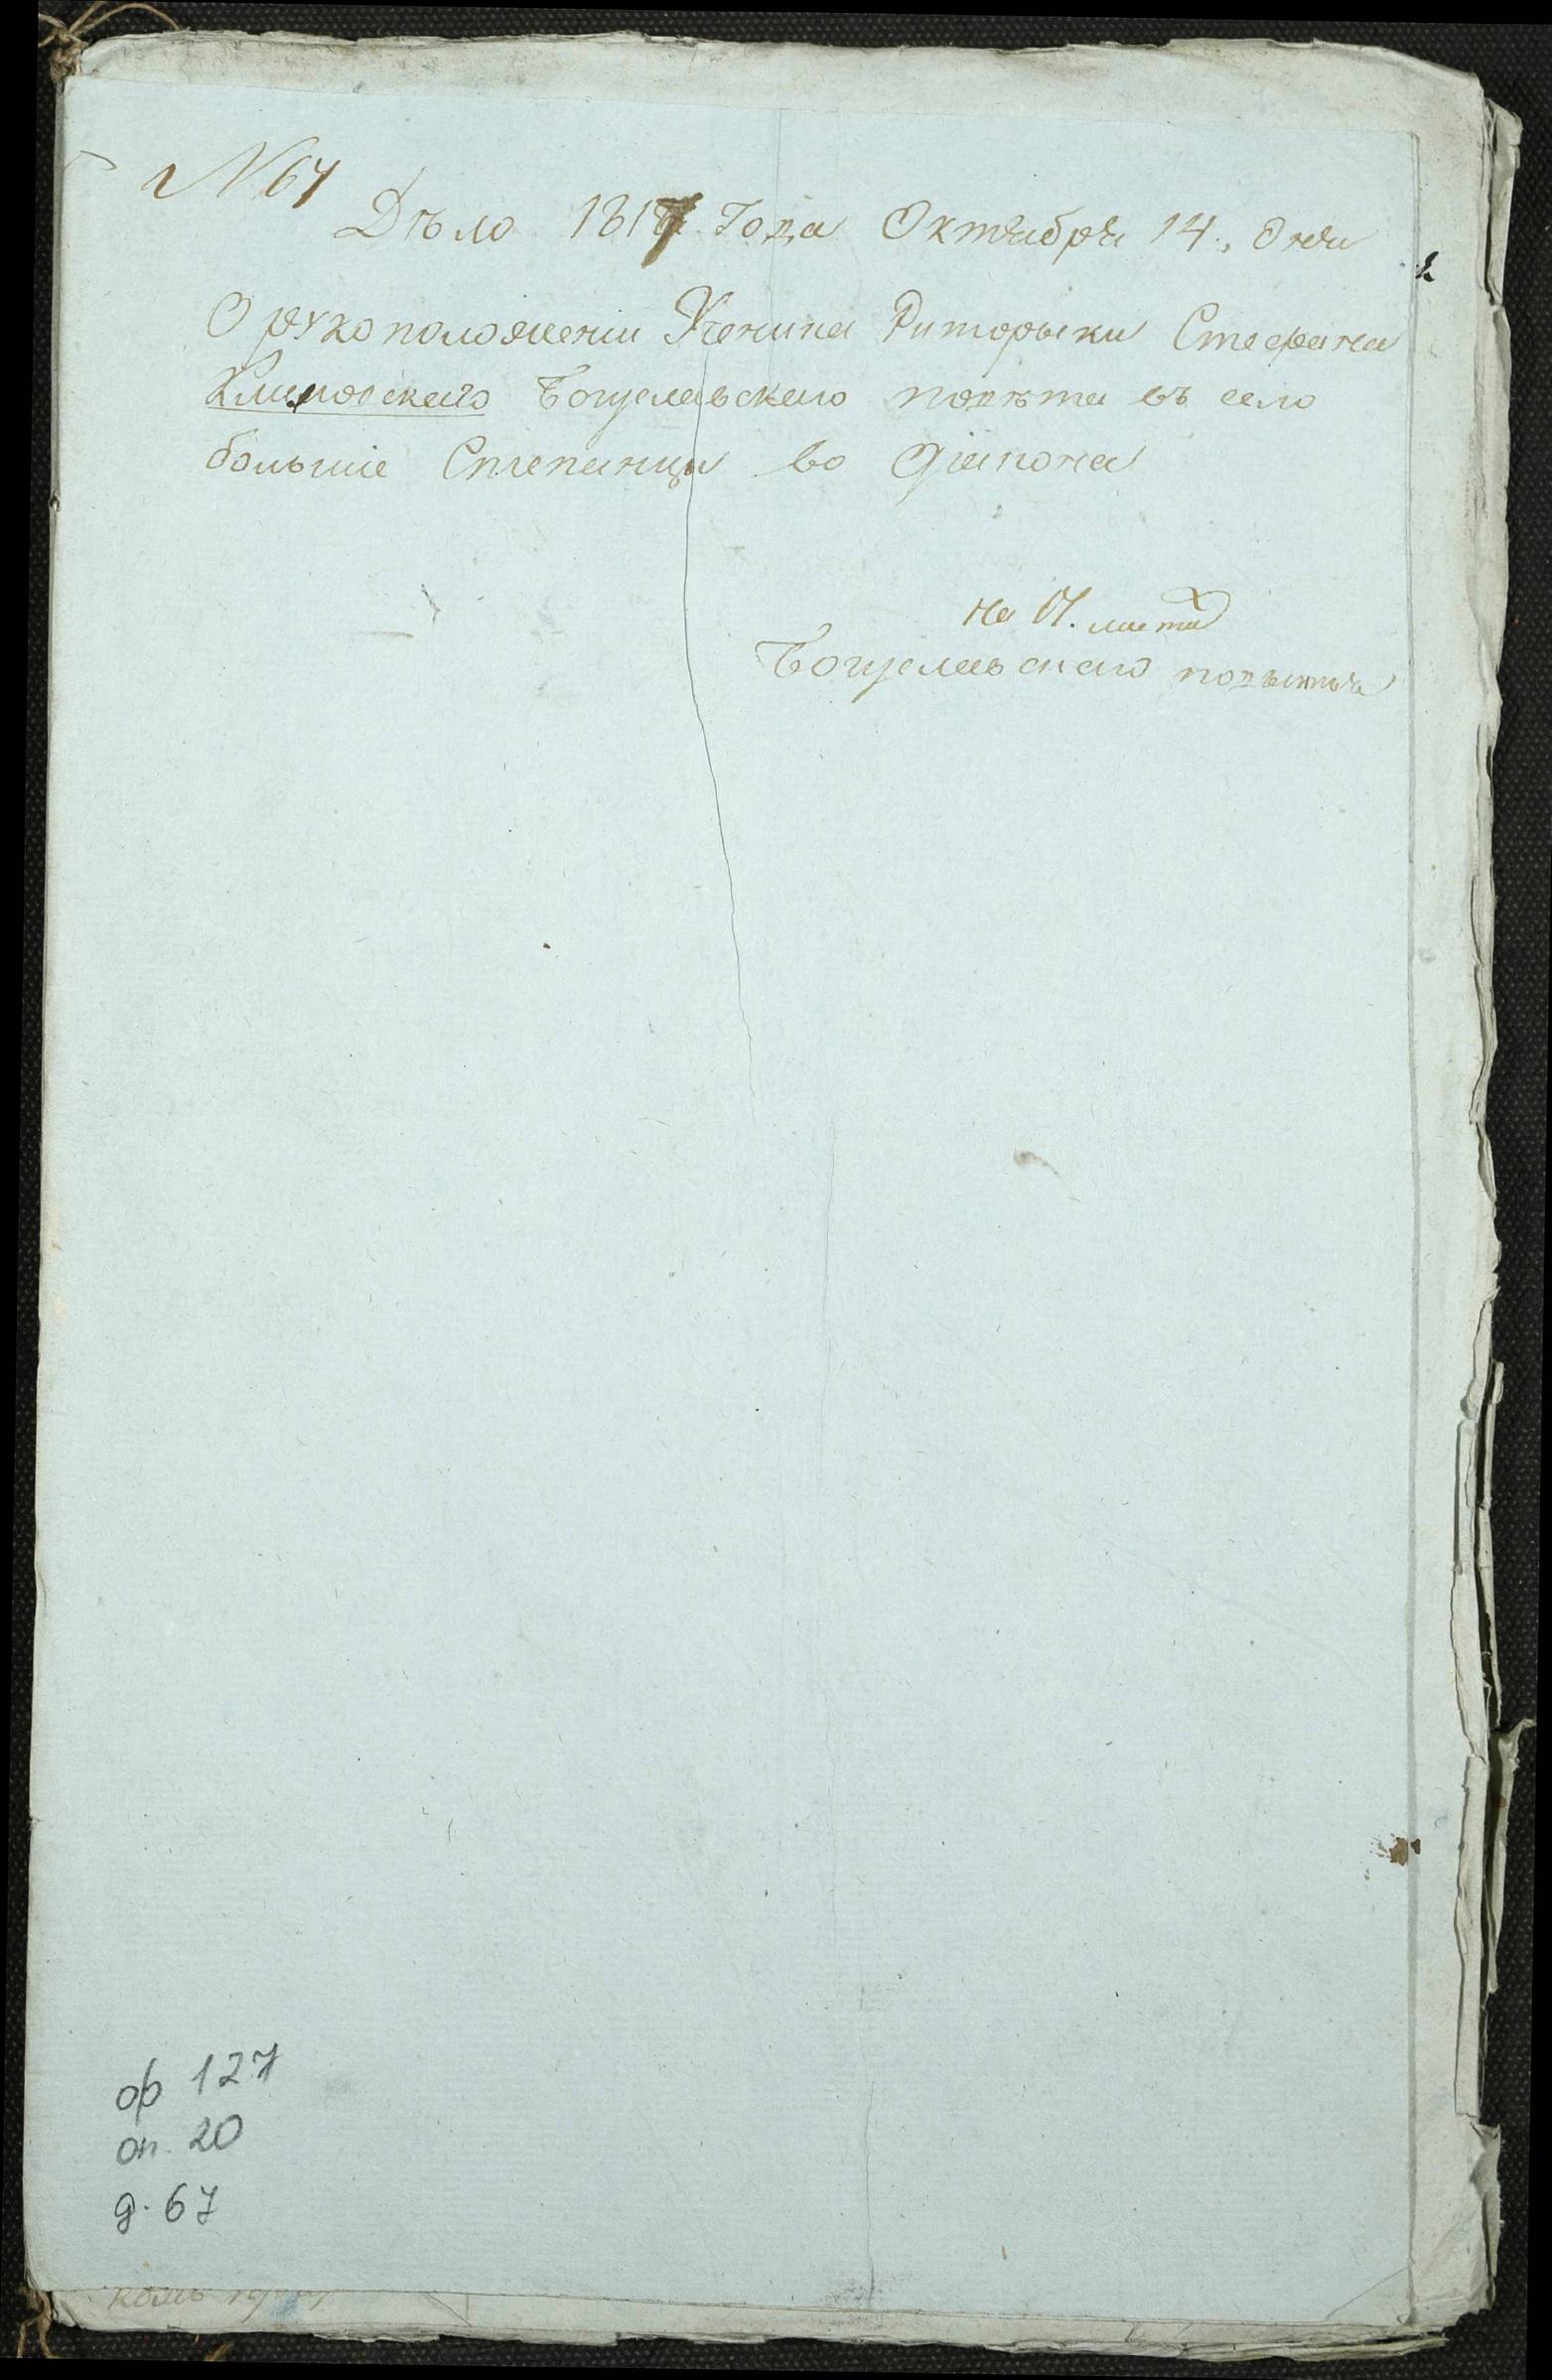 N 67
Дѣло 1817 Года Октября 14. дня
О рукоположеніи Ученика Риторыки Стефана
Климовскаго Богуславскаго повѣта въ село
большіе Степанци во Діакона
на 17. листахъ
Богуславскаго повѣта
ф 127
оп. 20
д. 67